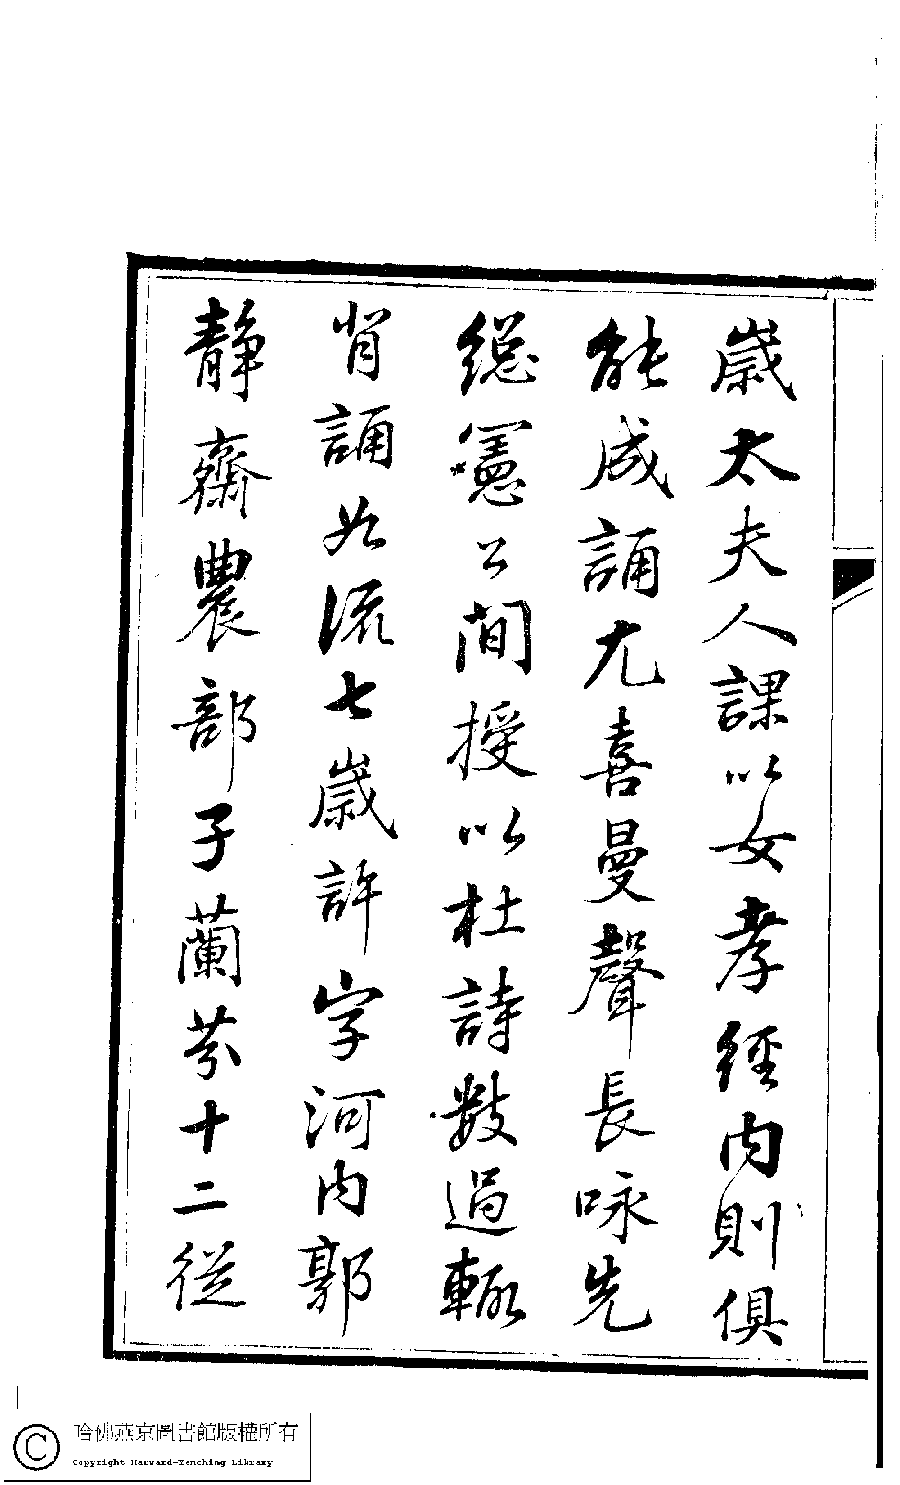 歲太夫人課以女孝經內則俱
能成誦尤喜曼聲長咏先
總憲公間授以杜詩數過輒
背誦如流七歲許字河內郭
靜齋農部子蘭芬十二從
哈佛燕京圖書館版權所有
Copyright Harvard-Yenching Library